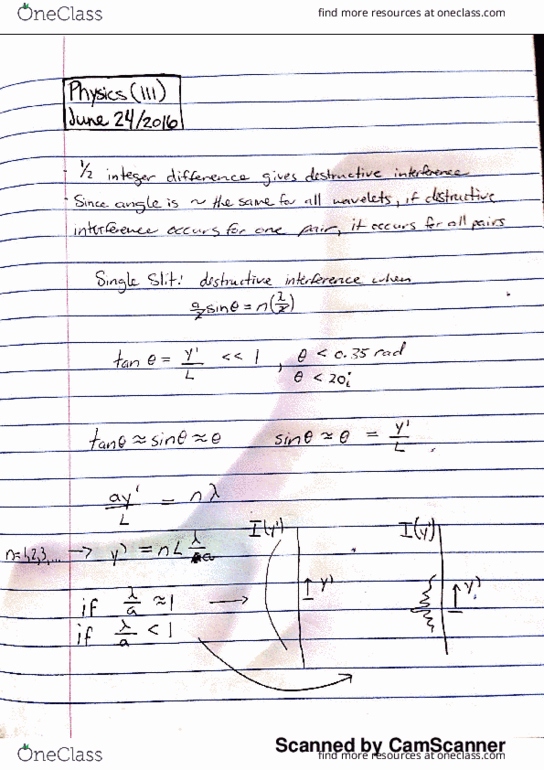 OneClass
find more resources at oneclass.com
Physics (111)
June 24/2016
- 1/2 integer difference gives destructive interference
- Since angle is ~ the same for all wavelets, if destructive
interference occurs for one pair, it occurs for all pairs
Single Slit: destructive interference when
a/2 sinθ = n(λ/2)
tan θ = y'/L << 1 , θ < 0.35 rad
θ < 20°
tanθ ≈ sinθ ≈ θ sinθ ≈ θ = y'/L
ay'/L = nλ
n=1,2,3,... → y' = nL λ/a
I(y') I(y')
↑ y' ↑ y'
if λ/a ≈ 1 →
if λ/a < 1
Scanned by CamScanner
OneClass
find more resources at oneclass.com